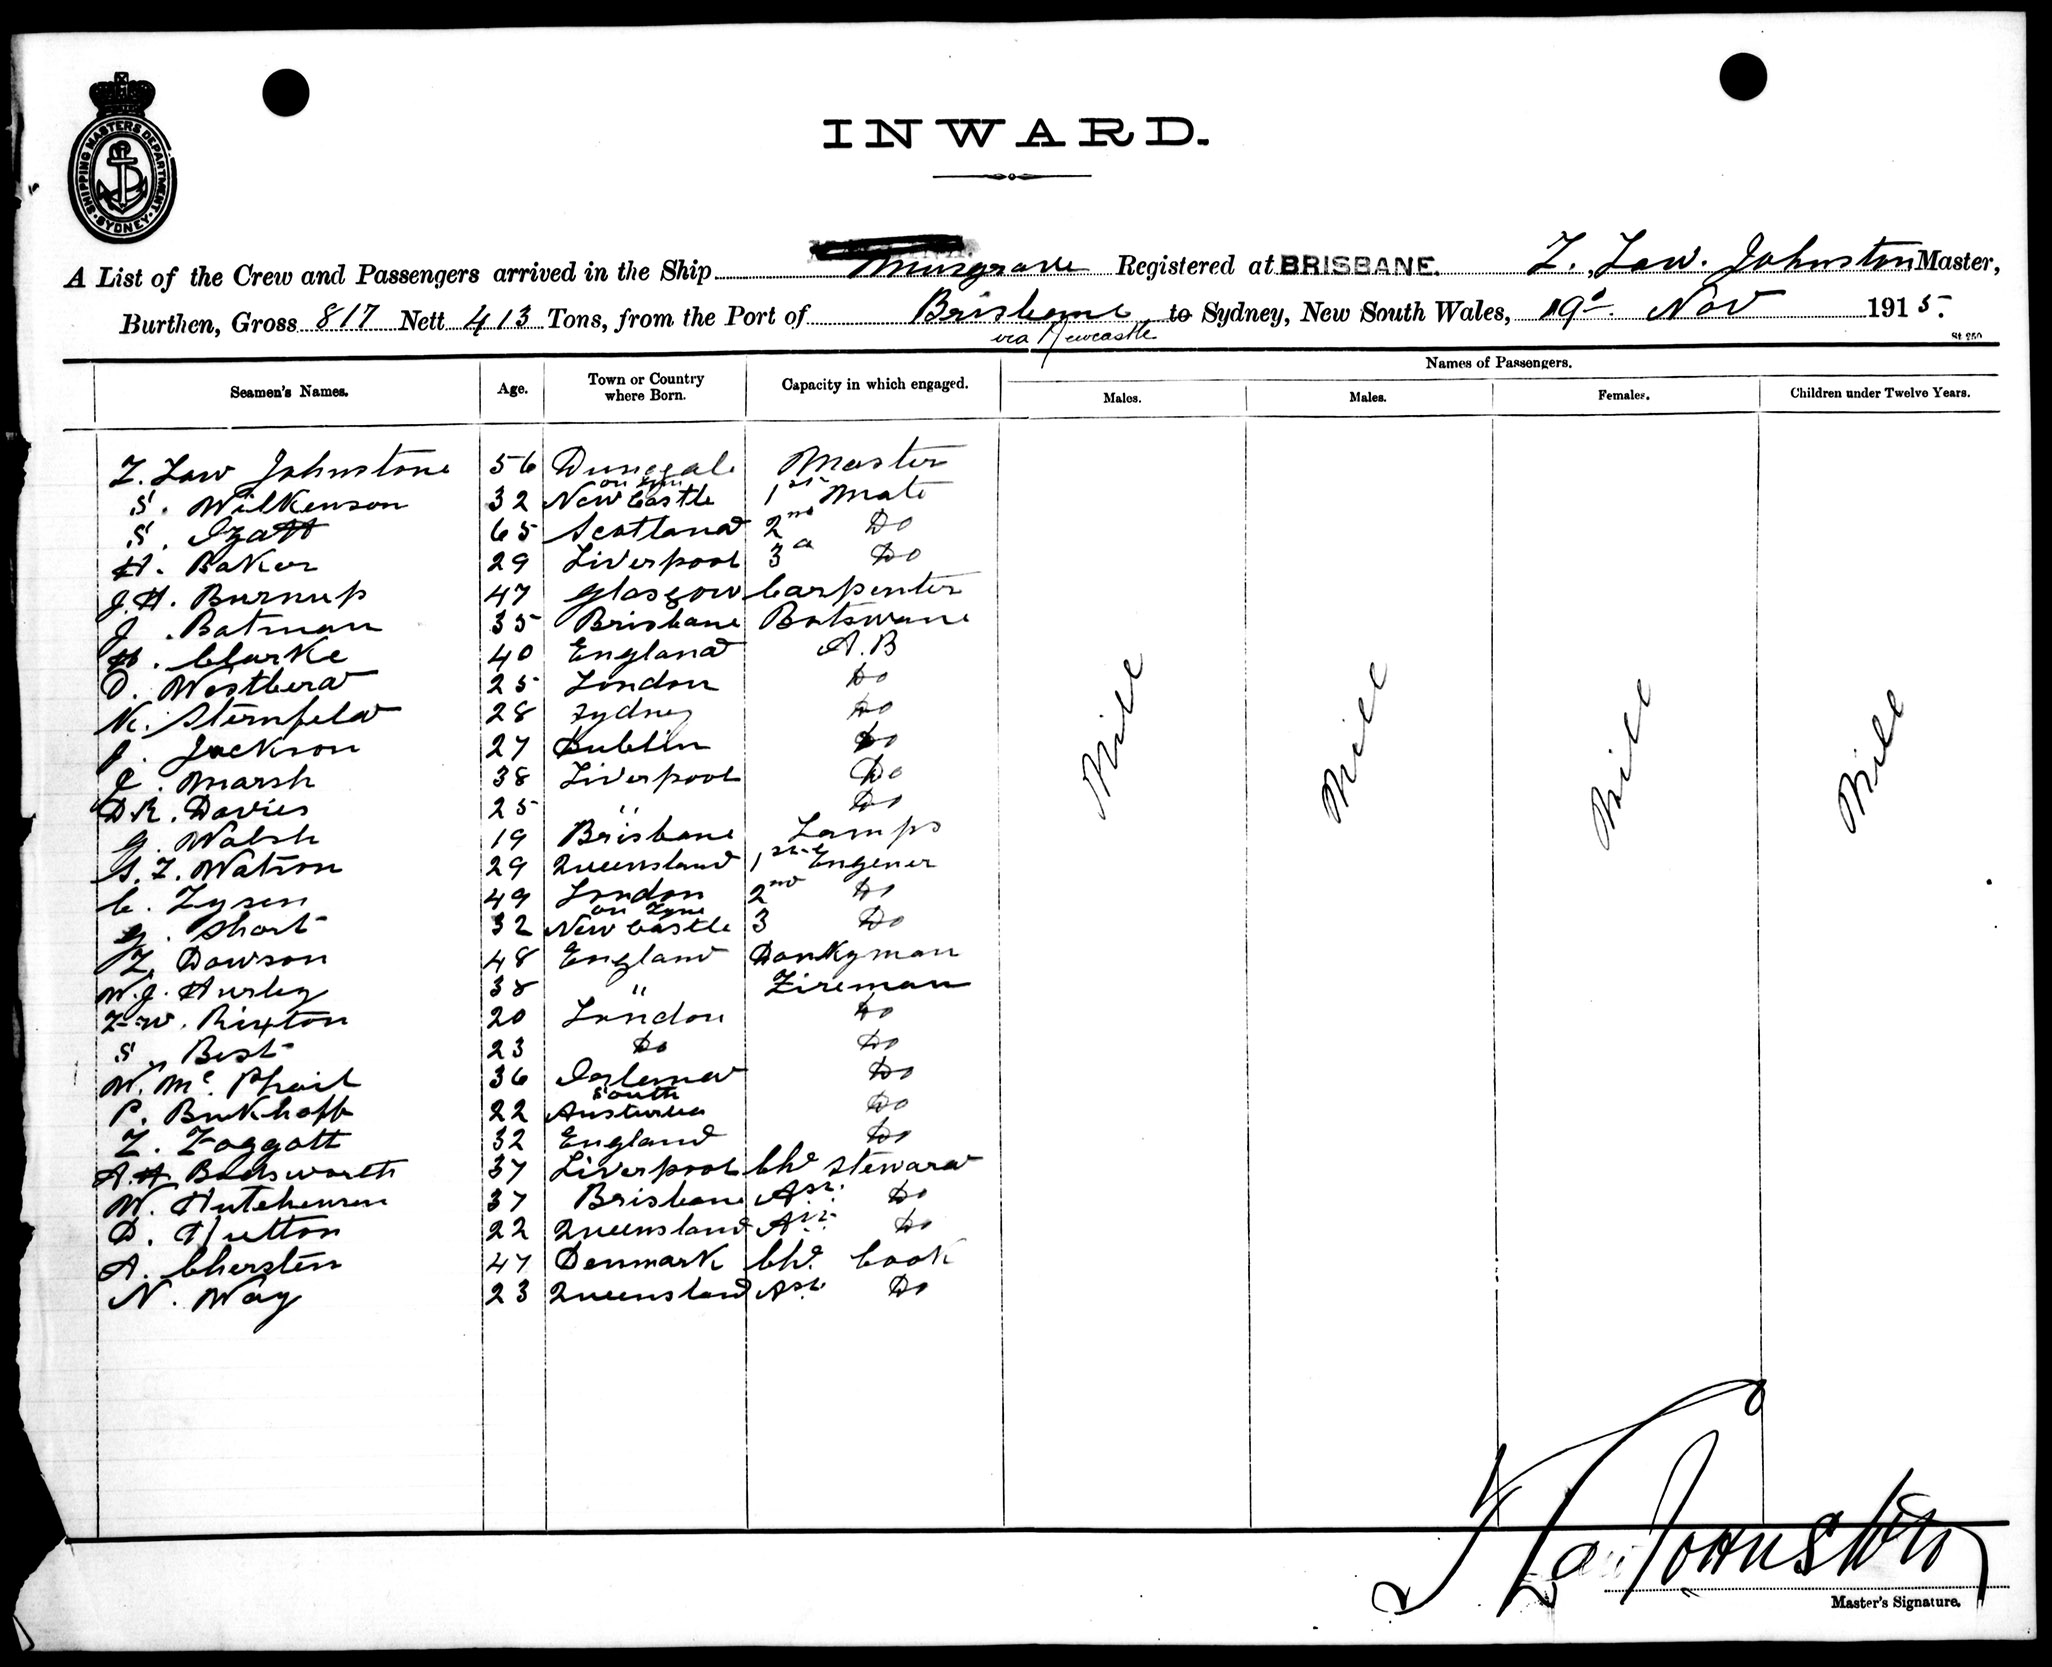 SHIPPING MASTERS DEPARTMENT. SYDNEY
INWARD.
A List of the Crew and Passengers arrived in the Ship Musgrave Registered at BRISBANE. F. Law. Johnston Master,
Burthen, Gross 817 Nett 413 Tons, from the Port of Brisbane to Sydney, New South Wales, 19 Nov 1915.
via Newcastle
St 250
Names of Passengers.
Seamen's Names. Age. Town or Country where Born. Capacity in which engaged. Males. Males. Females. Children under Twelve Years.
F. Law Johnstone 56 Master
S. Wilkenson 32 New Castle on Tyn 1st Mate
S. Izatt 65 Scotland 2nd Do
H. Baker 29 Liverpool 3d Do
J. H. Burnup 47 Glasgow Carpenter
J. Batman 35 Brisbane Botswane
H. Clarke 40 England A.B
O. Westberd 25 London Do
N. Sternfeld 28 Sydney Do
J. Jackson 27 Dublin Do
J. Marsh 38 Liverpool Do
D.R. Davies 25 " Do
G. Walsh 19 Brisbane Lamps
G. F. Watson 29 Queensland 1st Engener
C. Tysen 49 London 2nd Do
G. Short 32 New Castle on Tyne 3 Do
F. Dowson 48 England Donkyman
W.J. Hursley 38 " Fireman
F-W. Rixton 20 London Do
S. Best 23 Do Do
W. Mc Phail 36 Do
P. 22 South Do
F. Foggott 32 England Do
A.H Bodsworth 37 Liverpool Chf Steward
W. Hutchenson 37 Brisbane Asst. Do
D. Hutton 22 Queensland Asst. Do
A. Chersten 47 Denmark Chf. Cook
N. Way 23 Queensland Asst. Do
Nill Nill Nill Nill
F Law Johnston
Master's Signature.